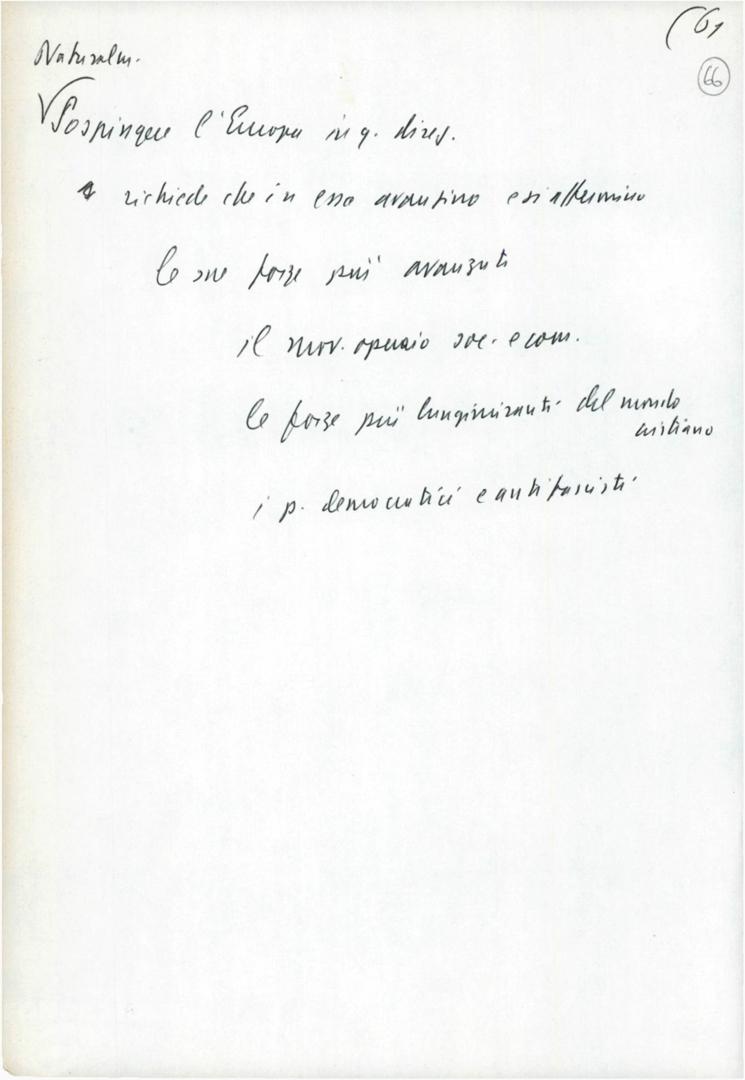 (61
66
Naturalm.
Sospingere l'Europa in q. direz.
richiede che in essa avanzino e si affermino
le sue forze più avanzate
il mov. operaio soc. e com.
le forze più lungimiranti del mondo
cristiano
i p. democratici e antifascisti